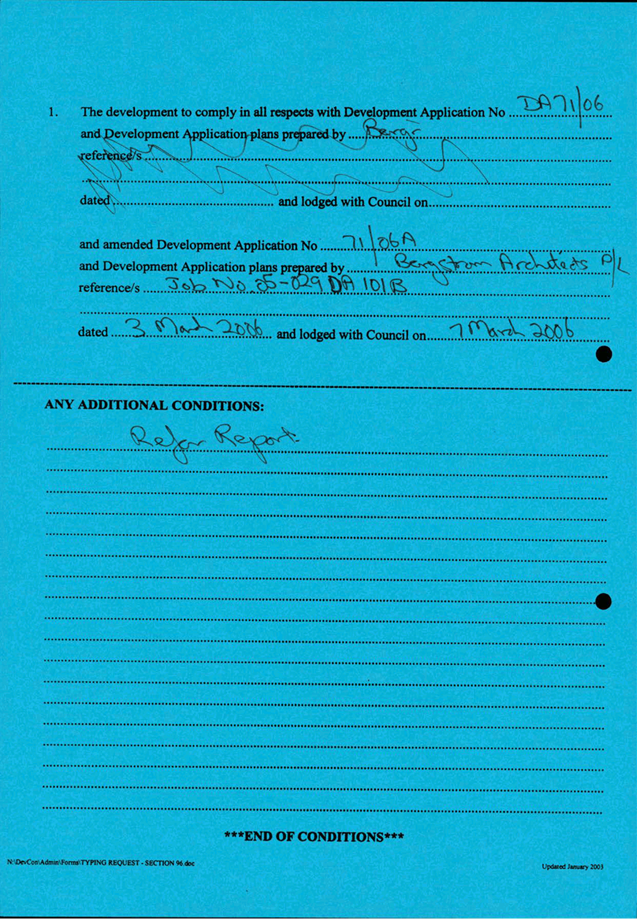 1. The development to comply in all respects with Development Application No ... DA71/06
and Development Application plans prepared by ... Bergr
reference/s ...
dated ... and lodged with Council on...
and amended Development Application No ... 71/06A
and Development Application plans prepared by ... Bergstrom Architects P/L
reference/s ... Job No 05-029 DA 101B
dated ... 3 March 2006 and lodged with Council on... 7 March 2006
ANY ADDITIONAL CONDITIONS:
Refer Report.
***END OF CONDITIONS***
N:\DevCon\Admin\Forms\TYPING REQUEST - SECTION 96.doc
Updated January 2003